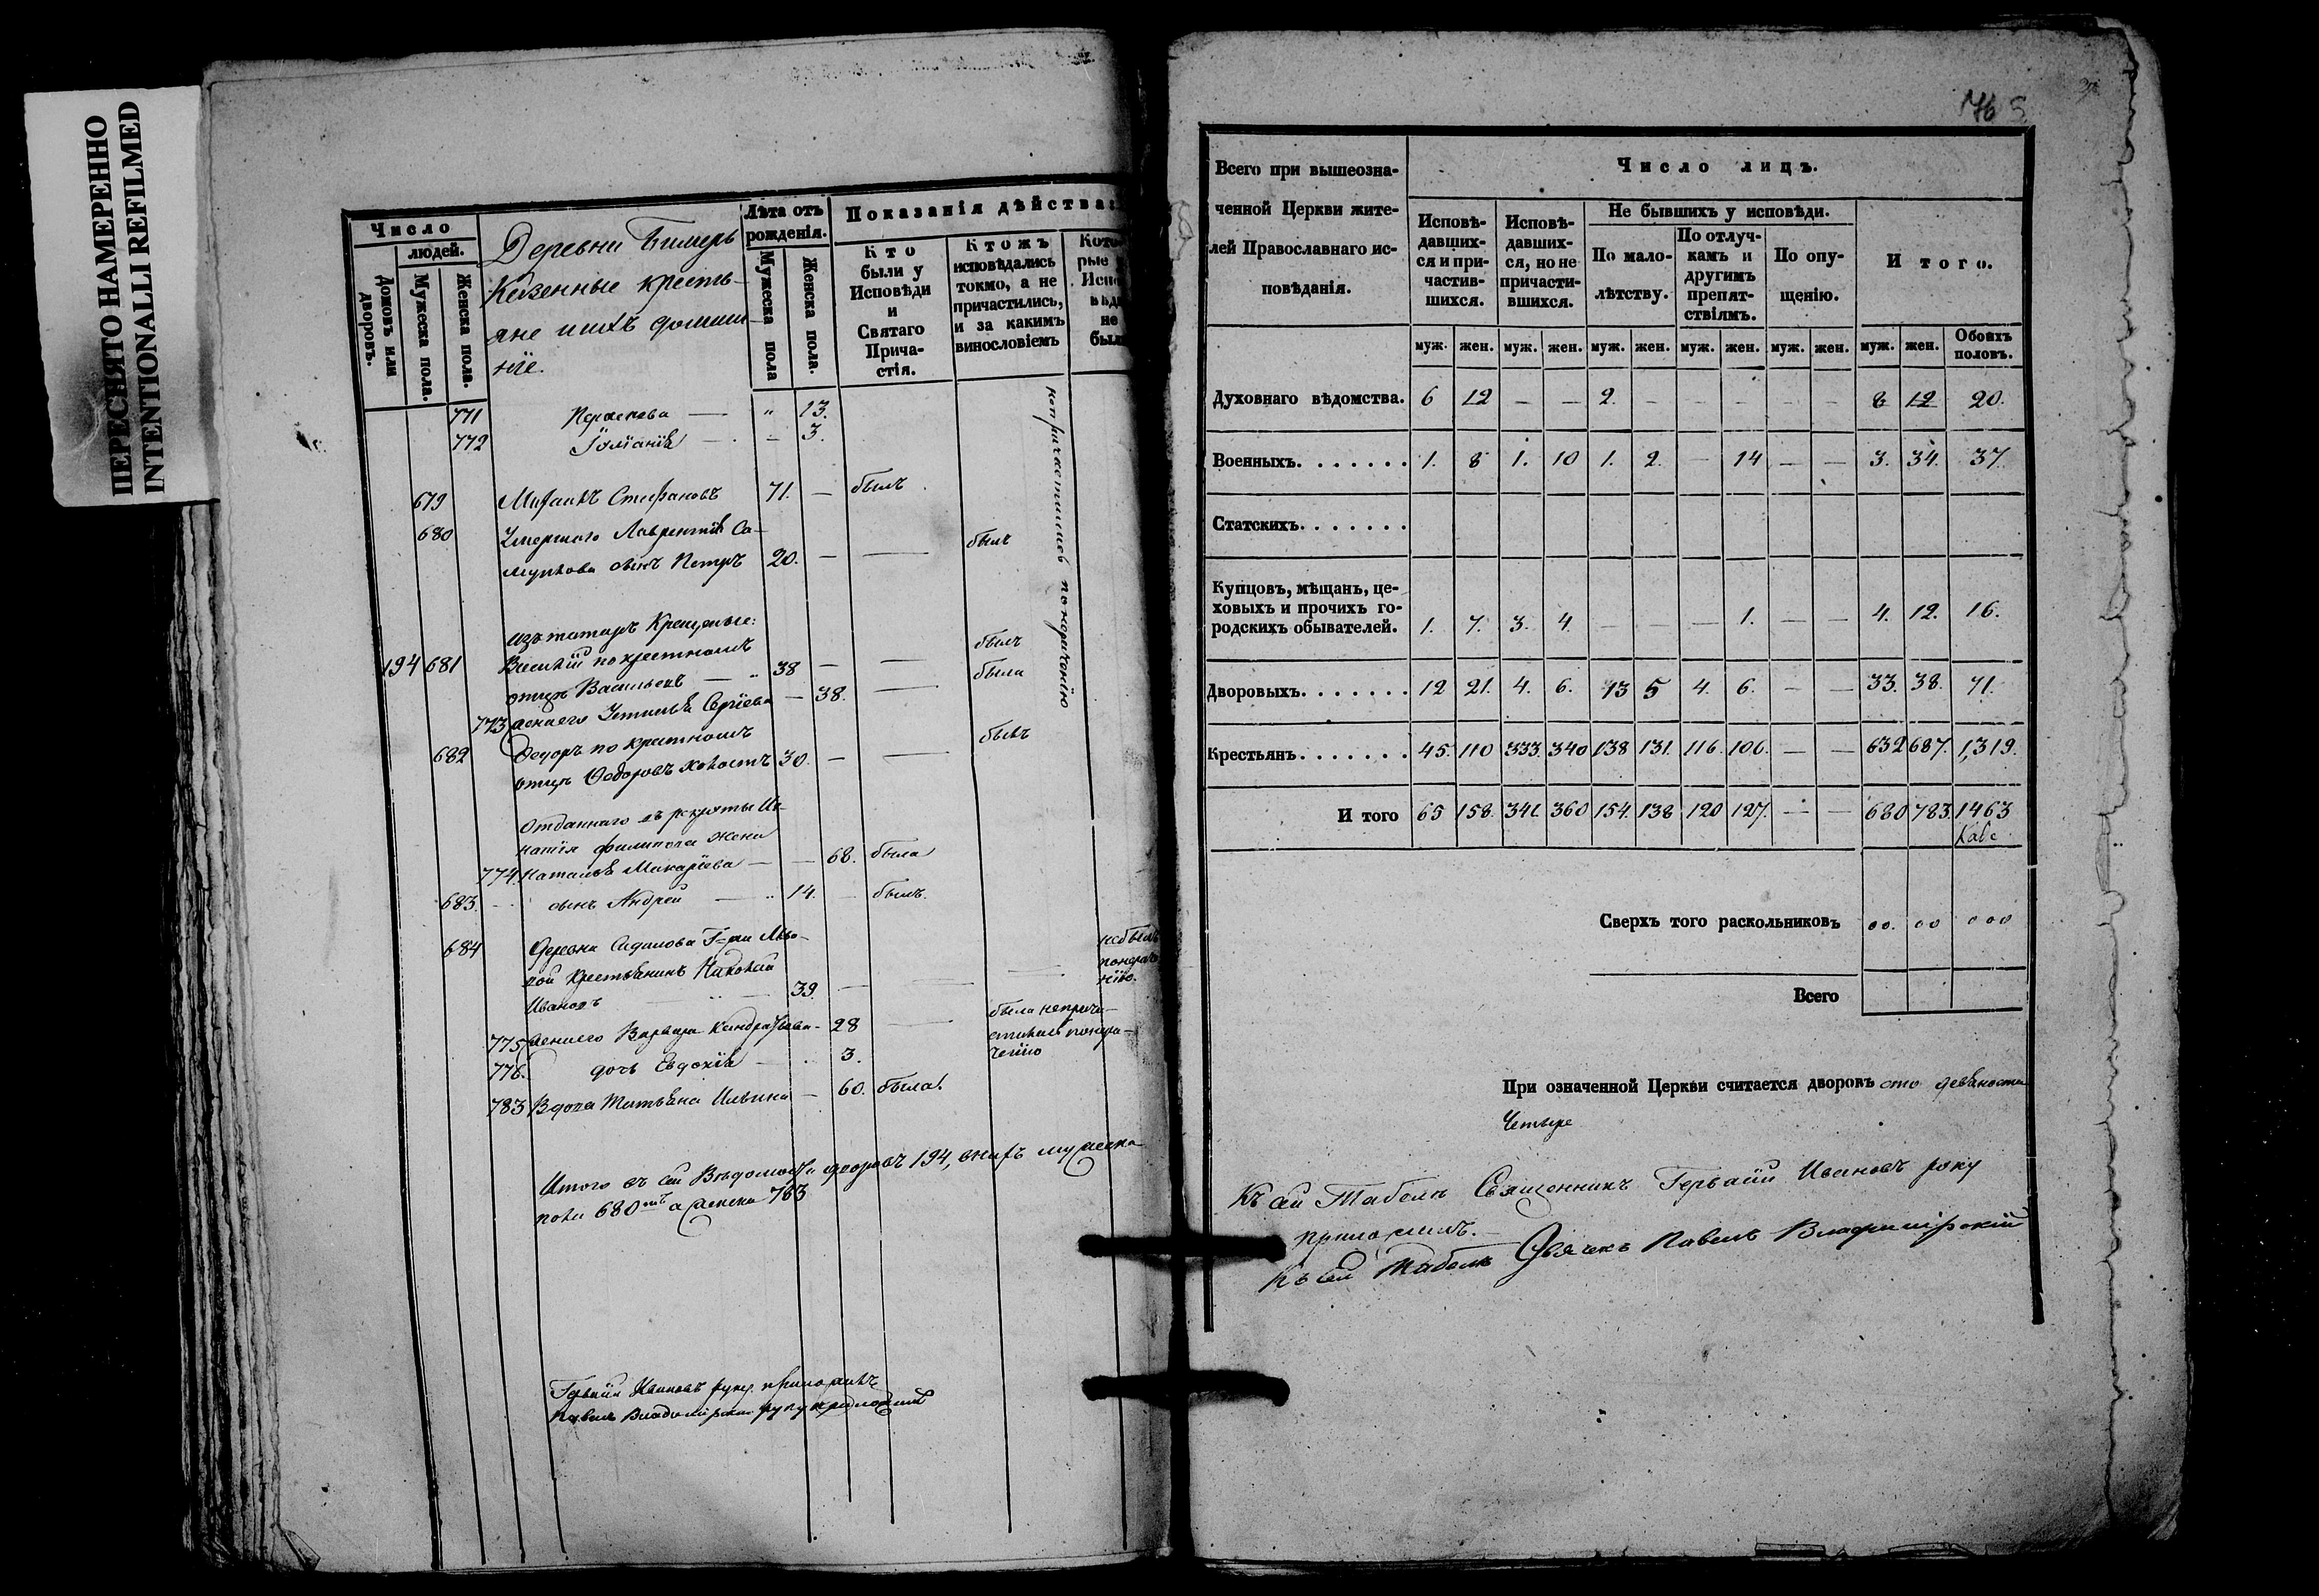 ПЕРЕСНЯТО НАМЕРЕННО
INTENTIONALLI REFILMED
Число
людей.
Домовъ или дворовъ.
Мужеска пола.
Женска пола.
Деревни
Казенные кресть-
яне и ихъ домаш-
ніе.
Лѣта отъ рожденія.
Мужеска пола
Женска пола.
Показанія дѣйства:
Кто были у Исповѣди и Святаго Прича-стія.
Ктожъ исповѣдались токмо, а не причастились, и за какимъ винословіемъ
771 " 13.
772 3.
679 Стефановъ 71. — былъ
680 Умершаго Лаврентія Са-
сынъ Петръ 20. — — былъ
изъ татаръ Крещеные:
194 681 Василій по крестномъ
отцѣ Васильевъ — 38 — — былъ
773 жена его Сергіева — 38. — была
682 Федоръ по крестномъ
отцѣ Федоровъ холостъ 30. — — былъ
Отданнаго въ рекруты Иг-
натія Филипова жена
774. Наталья Макарьева — — 68. была
683. сынъ Андрей — 14. — былъ.
684 Деревни
крестьянинъ Николай
Ивановъ 39. — — —
не былъ
775 жена его Варвара Кондратьева - 28 —
была не прича-
776. дочь Евдокія — 3.
783 Вдова Татьяна Ильина — 60. была.
Итого въ сей Вѣдомости дворовъ 194, въ нихъ мужеска
пола 680 а женска 783
Гервасій Ивановъ руку приложилъ
Павелъ Владимірскій руку приложилъ
76
Всего при вышеозна-
ченной Церкви жите-
лей Православнаго ис-
повѣданія.
Число лицъ.
Исповѣ-давших-ся и при-частив-шихся.
Исповѣ-давших-ся, но не причасти-вшихся.
Не бывшихъ у исповѣди.
По мало-лѣтству.
По отлуч-камъ и другимъ препят-ствіямъ.
По опу-щенію.
Итого.
муж. жен. муж. жен. муж. жен. муж. жен. муж. жен. муж. жен. Обоихъ половъ.
Духовнаго вѣдомства. 6 12 — — 2. — — — — — 8 12 20.
Военныхъ. . . . . . . 1. 8 1. 10 1. 2. — 14 — — 3. 34. 37.
Статскихъ. . . . . . .
Купцовъ, мѣщанъ, це-
ховыхъ и прочихъ го-
родскихъ обывателей. 1. 7. 3. 4. — — — 1. — — 4. 12. 16.
Дворовыхъ. . . . . . . 12 21. 4. 6. 13 5 4. 6. — — 33. 38. 71.
Крестьянъ. . . . . . . 45. 110 333. 340 138 131. 116. 106. — — 632 687. 1,319.
И того 65 158. 341. 360 154. 138 120 127. — — 680 783. 1463
Сверхъ того раскольниковъ 00. 00 000
Всего
При означенной Церкви считается дворовъ сто девяносто
Четыре
Къ сей Табели Священникъ Гервасій Ивановъ руку
приложилъ.—
Къ сей Табели Дьячекъ Павелъ Владимірскій